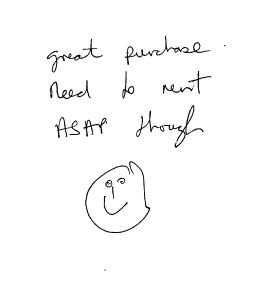 great purchase.
Need to rent
ASAP though